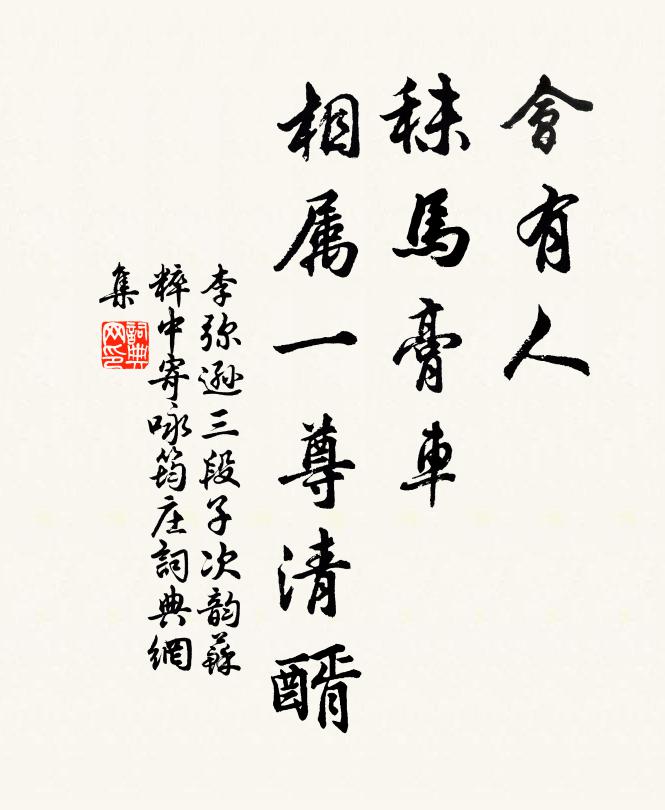 會有人
秣馬膏車
相属一尊清醑
李弥遜三段子次韵蘇
粹中寄咏筠庄詞典網
集
詞典
网印